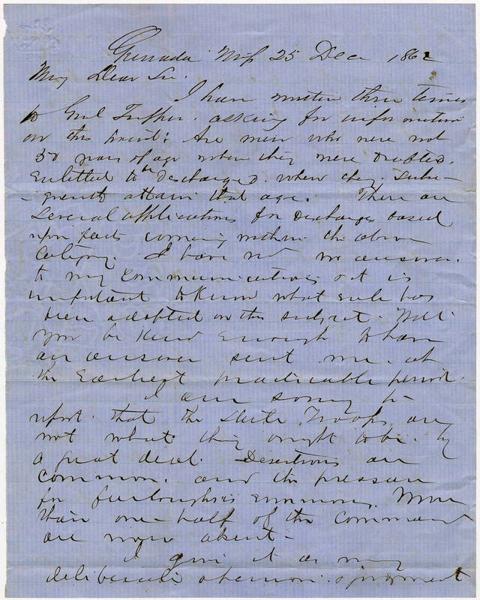 Grenada Miss 25 Dec 1862
My Dear Sir.
I have written three times
to Genl Tupper. asking for information
on this point: Are men who were not
50 years of age when they were enrolled,
entitled to be discharged. when they subse-
quently attain that age. There are
several applications for discharges based
upon facts coming within the above
category. I have recd no answer
to my communications & it is
important to know what rule has
been adopted on this subject. Will
you be kind enough to have
an answer sent me at
the earliest practicable period.
I am sorry to
report that the State Troops are
not what they ought to be. by
a great deal. Desertions are
common. and the pressure
for furloughs is enormous. More
than one-half of the command
are now absent-
I give it as my
deliberate opinion & judgment